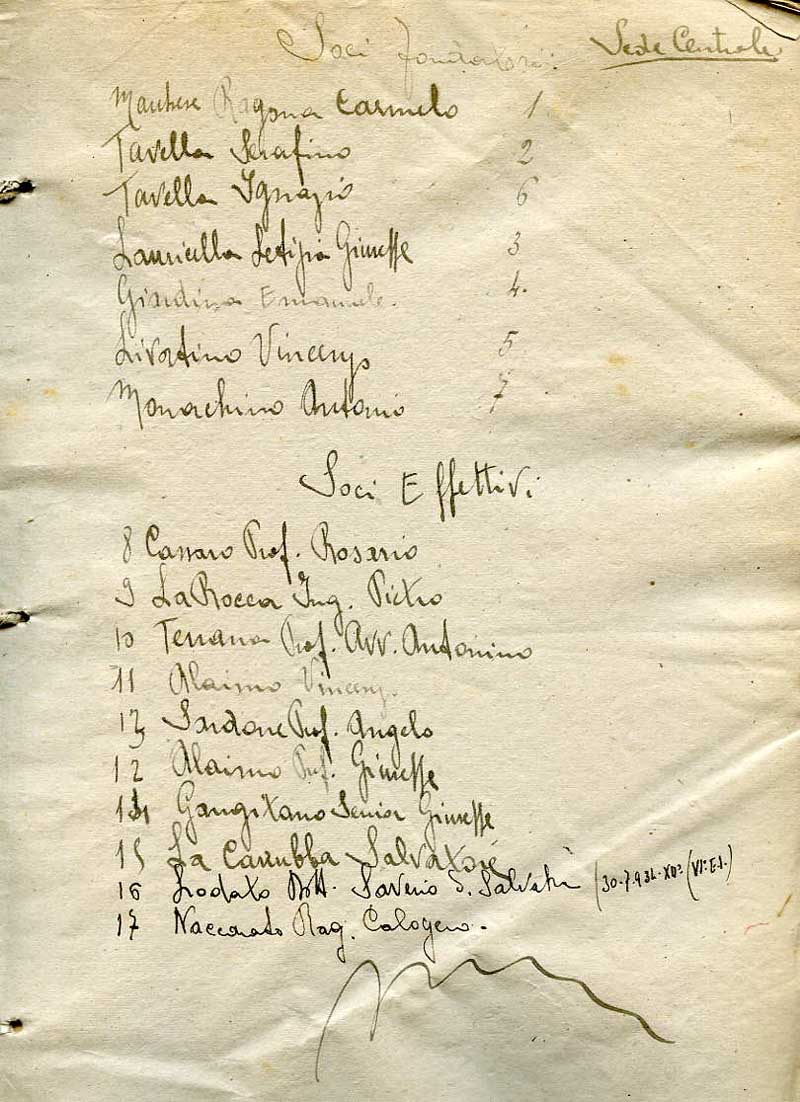 Soci fondatori: Sede Centrale
Marchese Ragona Carmelo 1
Tavella Serafino 2
Tavella Ignazio 6
Lauricella Letizia Giuseppe 3
Giardina Emanuele. 4.
Livatino Vincenzo 5
Monachino Antonio 7
Soci Effettivi
8 Cassaro Prof. Rosario
9 La Rocca Ing. Pietro
10 Terrana Prof. Avv. Antonino
11 Alaimo Vincenzo.
13 Sardone Prof. Angelo
12 Alaimo Prof. Giuseppe
14 Gangitano Senior Giuseppe
15 La Carrubba Salvatore
16 Lodato Dott. Saverio d. Salvatore (30.7.934.XIIº (VIº E.I.)
17 Naccarato Rag. Calogero.